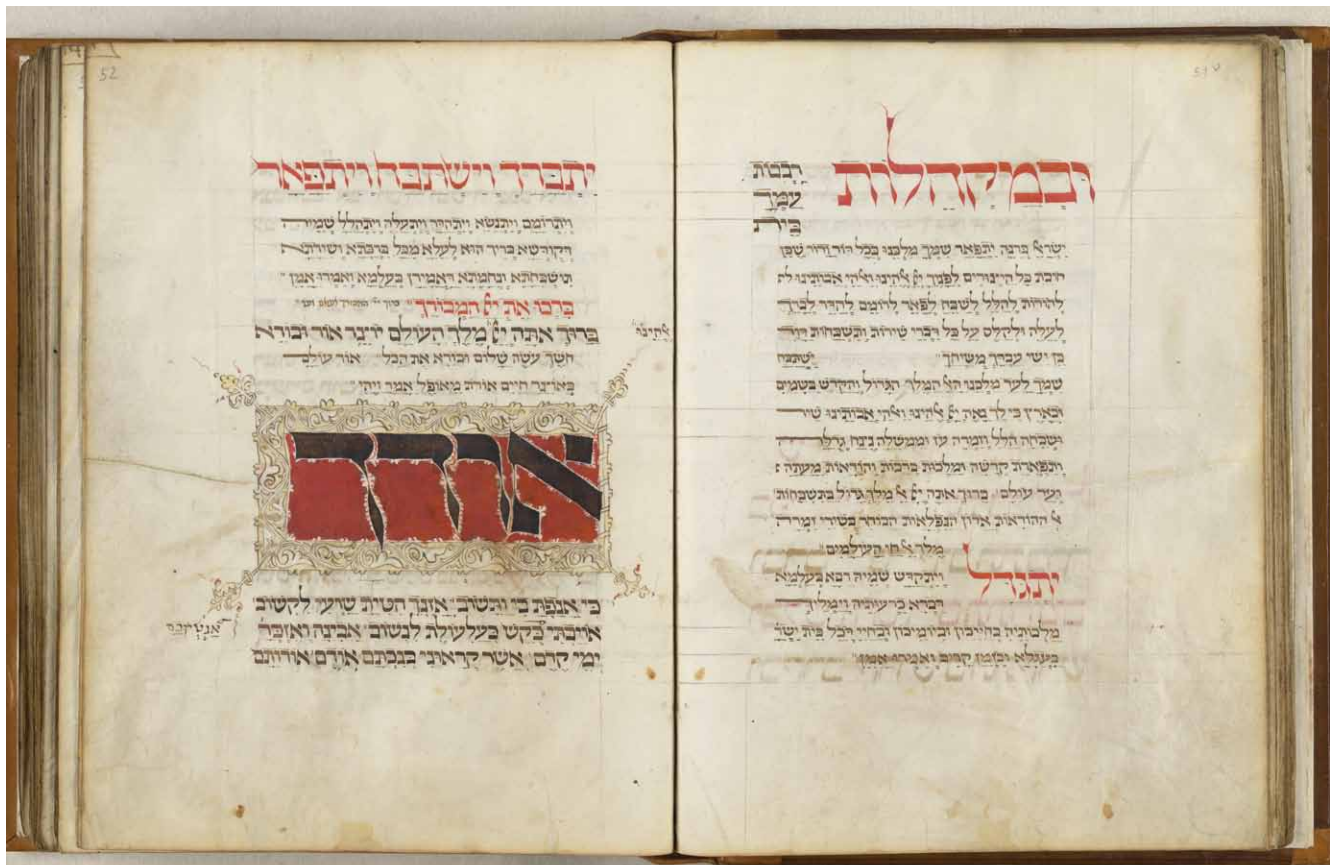 51v
וּבְמַקְהֲלוֹת
רִבְבוֹת
עַמְּךָ
בֵּית
ישר׳ ברנה יתפאר שמך מלכנו בכל דור ודור שכן
חובת כל היצורים לפניך אלהינו ואלהי אבותינו
להודות להלל לשבח לפאר לרומם להדר לברך
לעלה ולקלס על כל דברי שירות ותשבחות דויד
בן ישי עבדך משיחך ישתבח
שמך לעד מלכנו הא׳ המלך הגדול והקדש בשמים
ובארץ כי לך נאה אלהינו ואלהי אבותינו שיר
ושבחה הלל וזמרה עז וממשלה נצח גדלה
ותפארת קדשה ומלכות ברכות והודאות מעתה
ועד עולם ברוך אתה מלך גדול בתשבחות
ההודאות אדון הנפלאות הבוחר בשירי זמרה
מלך חי העולמים
יתגדל ויתקדש שמיה רבא בעלמא
דברא כרעותיה וימליך
מלכותיה בחייכון וביומיכון ובחיי דכל בית ישר׳
בעגלא ובזמן קריב ואמרו אמן
52
יתברך וישתבח ויתפאר
ויתרומם ויתנשא ויתהדר ויתעלה ויתהלל שמיה
דקודשא בריך הוא לעלא מכל ברכתא ושירתא
תושבחתא ונחמתא דאמירן בעלמא ואמרו אמן
ברכו את המבורך
ברוך אתה אלהינו מלך העולם יוצר אור ובורא
חשך עשה שלום ובורא את הכל אור עולם
באוצר חיים אורות מאופל אמר ויהי
אודך
כי אנפת בי ותשוב אזנך הטית שועי לקשוב
אויבתי בקש כעלעולה לנשוב אבינה ואזכר
ימי קדם אשר קראתי